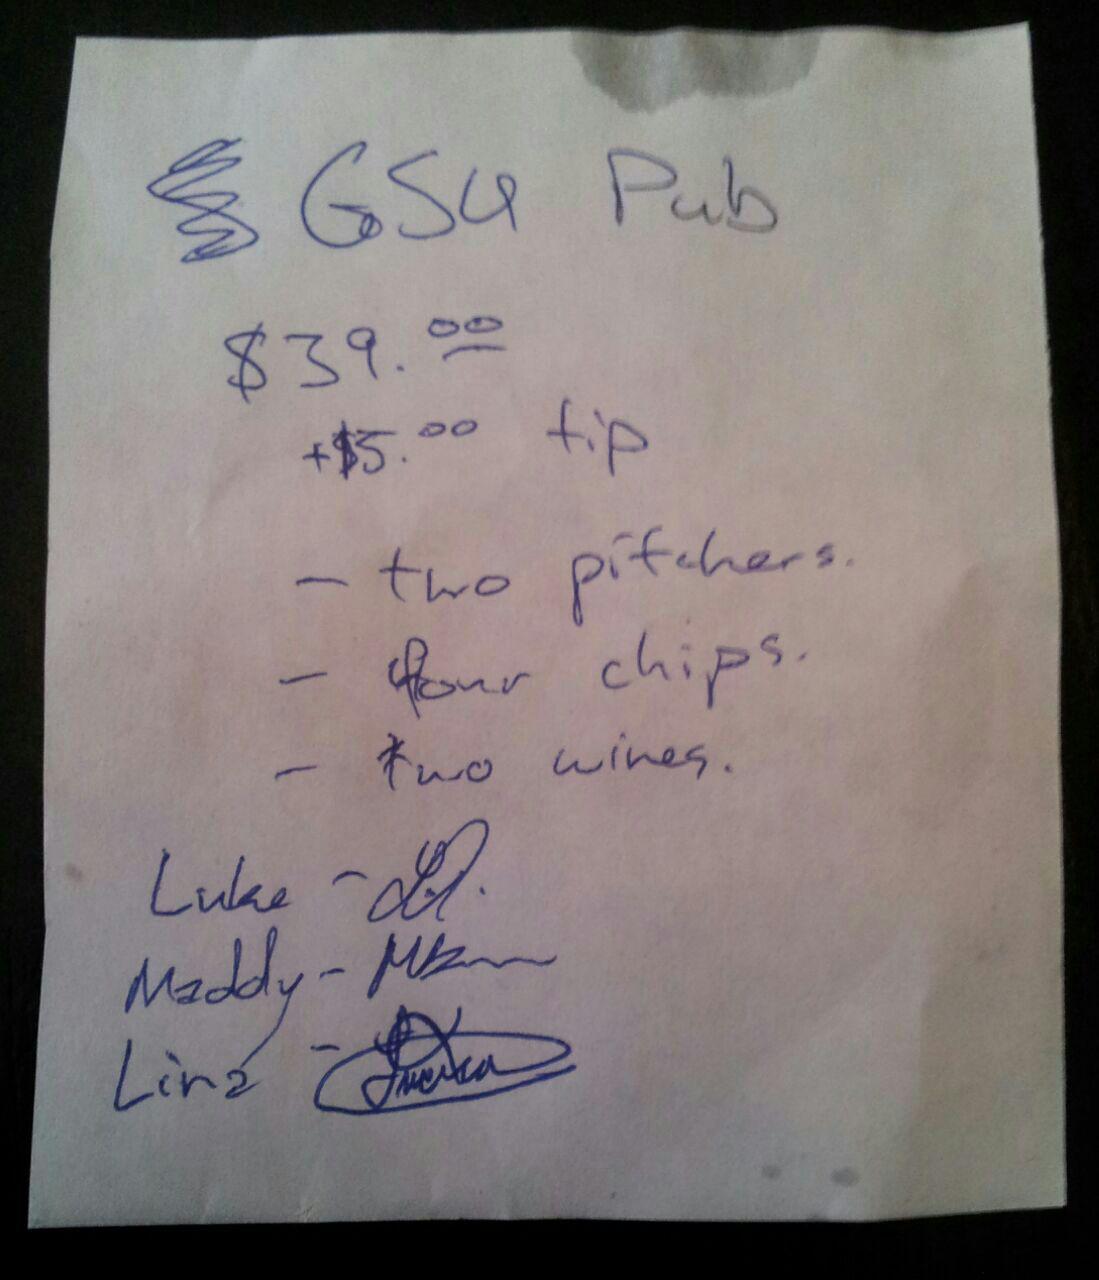 GSU Pub
$39.00
+$5.00 tip
- two pitchers.
- four chips.
- two wines.
Luke -
Maddy -
Lina -